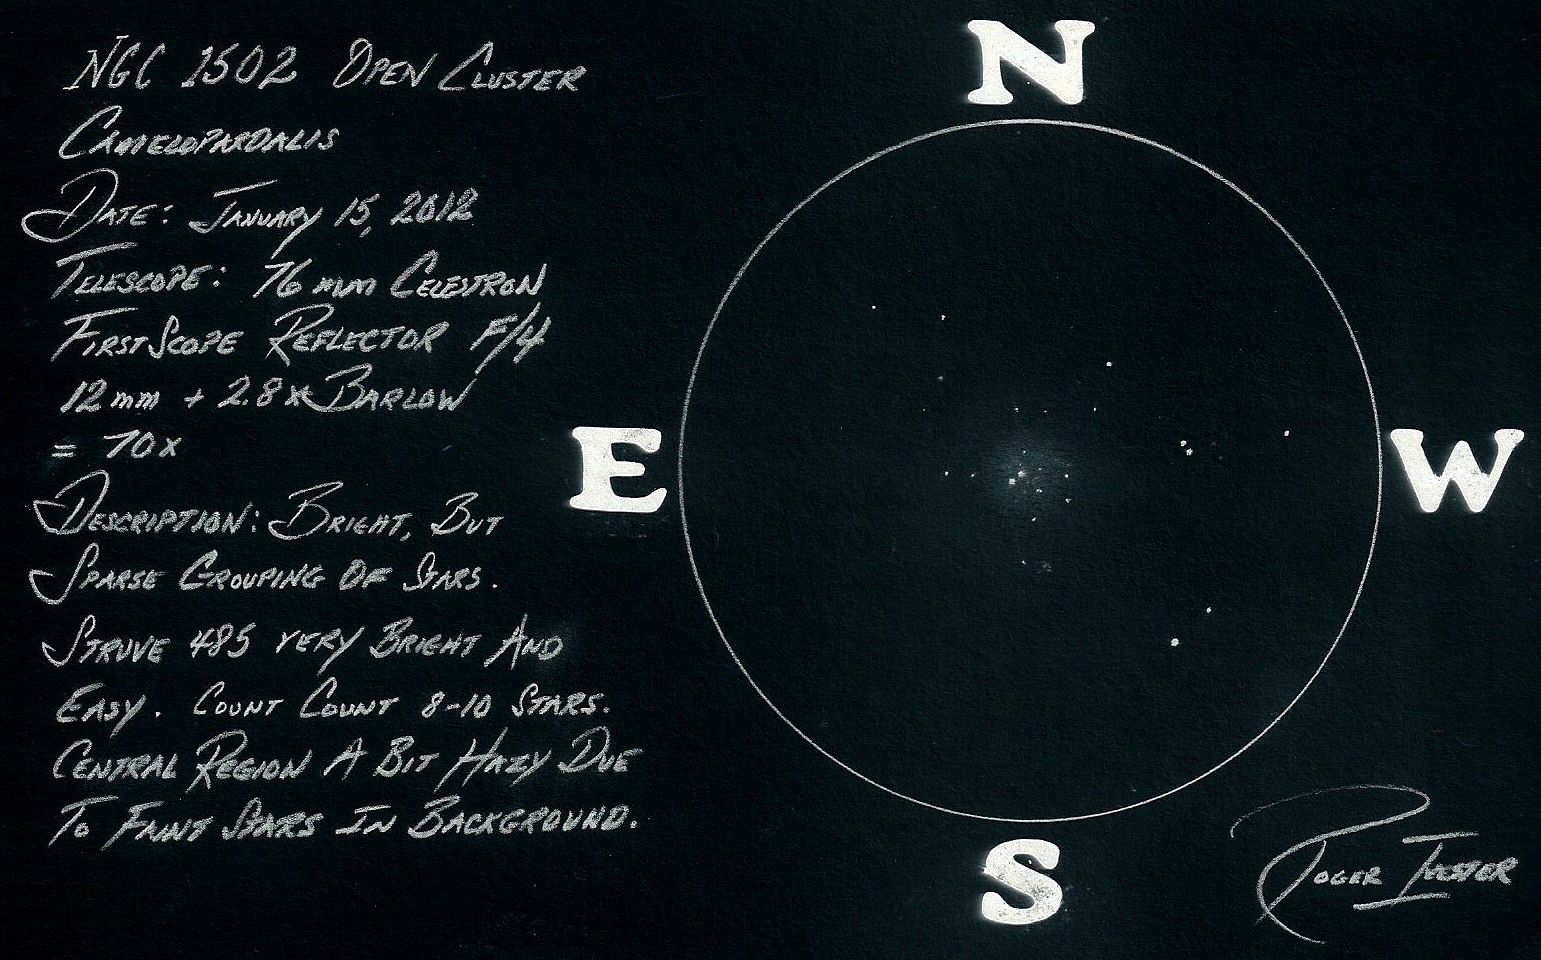 NGC 1502 OPEN CLUSTER
CAMELOPARDALIS
DATE: JANUARY 15, 2012
TELESCOPE: 76 mm CELESTRON
FIRSTSCOPE REFLECTOR F/4
12mm + 2.8x BARLOW
= 70x
DESCRIPTION: BRIGHT, BUT
SPARSE GROUPING OF STARS.
STRUVE 485 VERY BRIGHT AND
EASY. COUNT COUNT 8-10 STARS.
CENTRAL REGION A BIT HAZY DUE
TO FAINT STARS IN BACKGROUND.
N
E
W
S
ROGER IVESTER